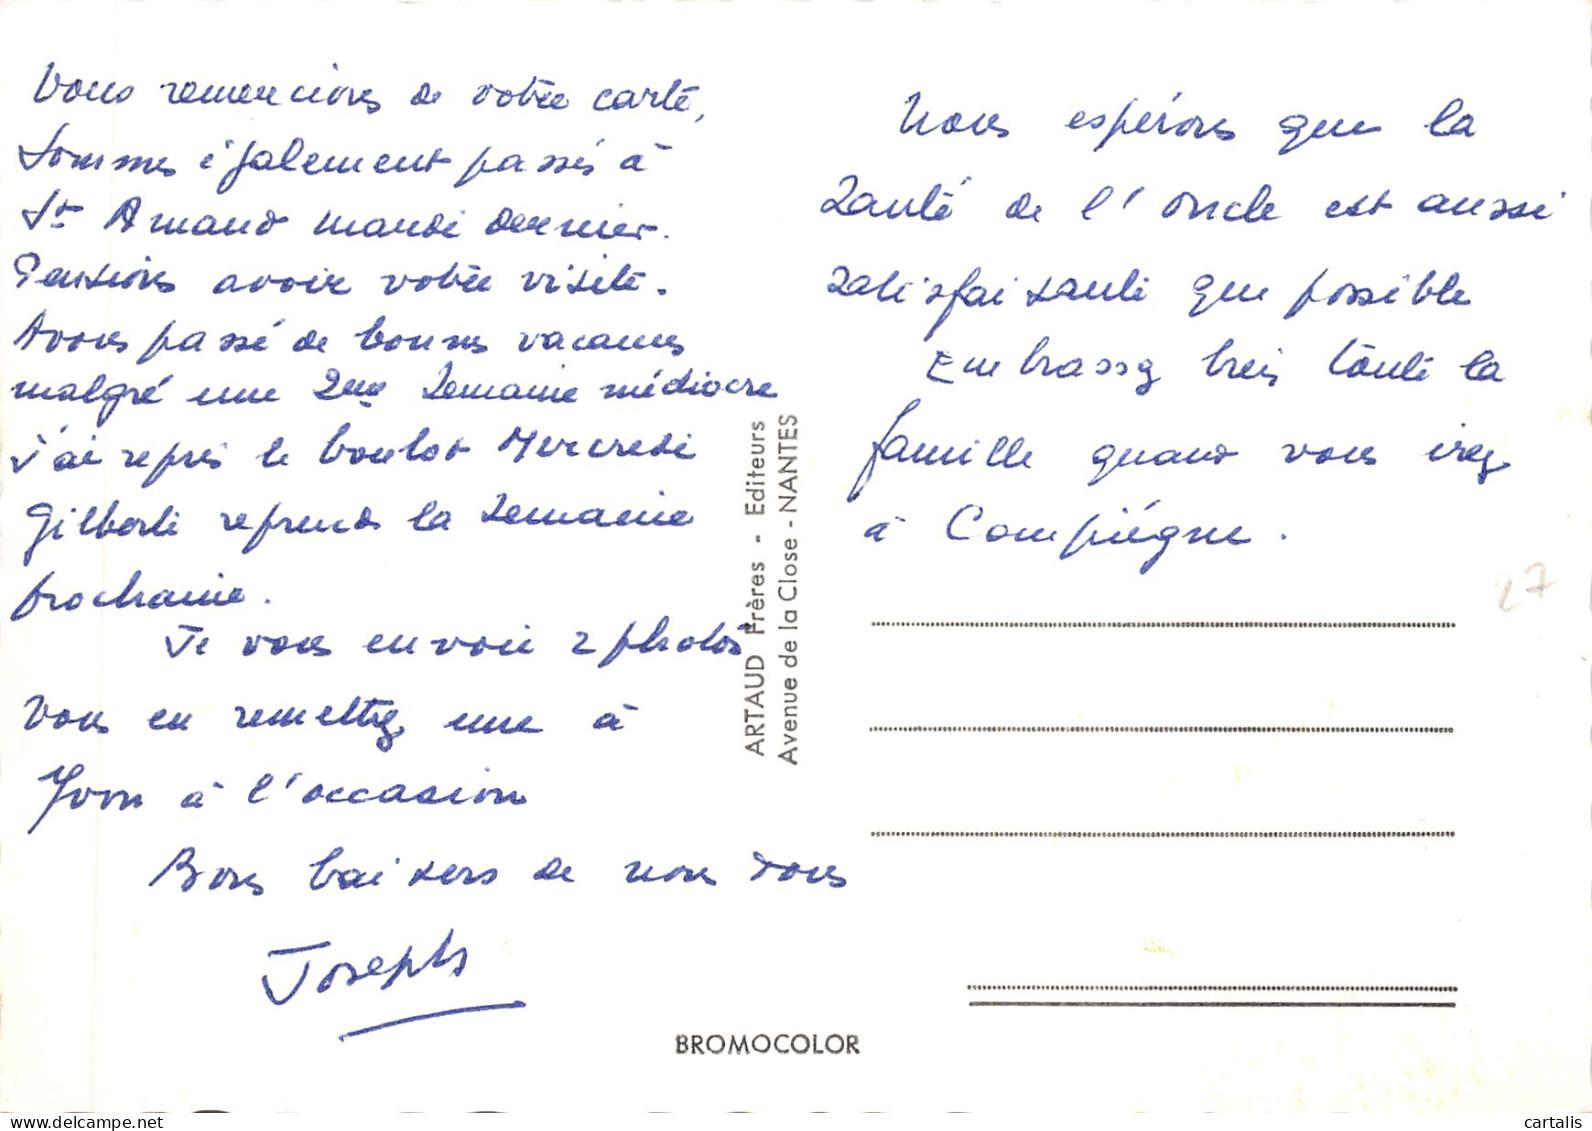 Vous remercions de votre carte,
Sommes également passés à
St Amand mardi dernier.
Pensions avoir votre visite.
Avons passé de bonnes vacances
malgré une 2ème Semaine médiocre
J'ai repris le boulot Mercredi
Gilberte reprend la semaine
prochaine.
Je vous envoie 2 photos
Vous en remettrez une à
Yvon à l'occasion
Bons baisers de nous tous
Joseph
Nous espérons que la
Santé de l'oncle est aussi
satisfaisante que possible
Embrassez bien toute la
famille quand vous irez
à Compiégne.
27
ARTAUD Frères - Editeurs
Avenue de la Close - NANTES
BROMOCOLOR
delcampe.net
cartalis